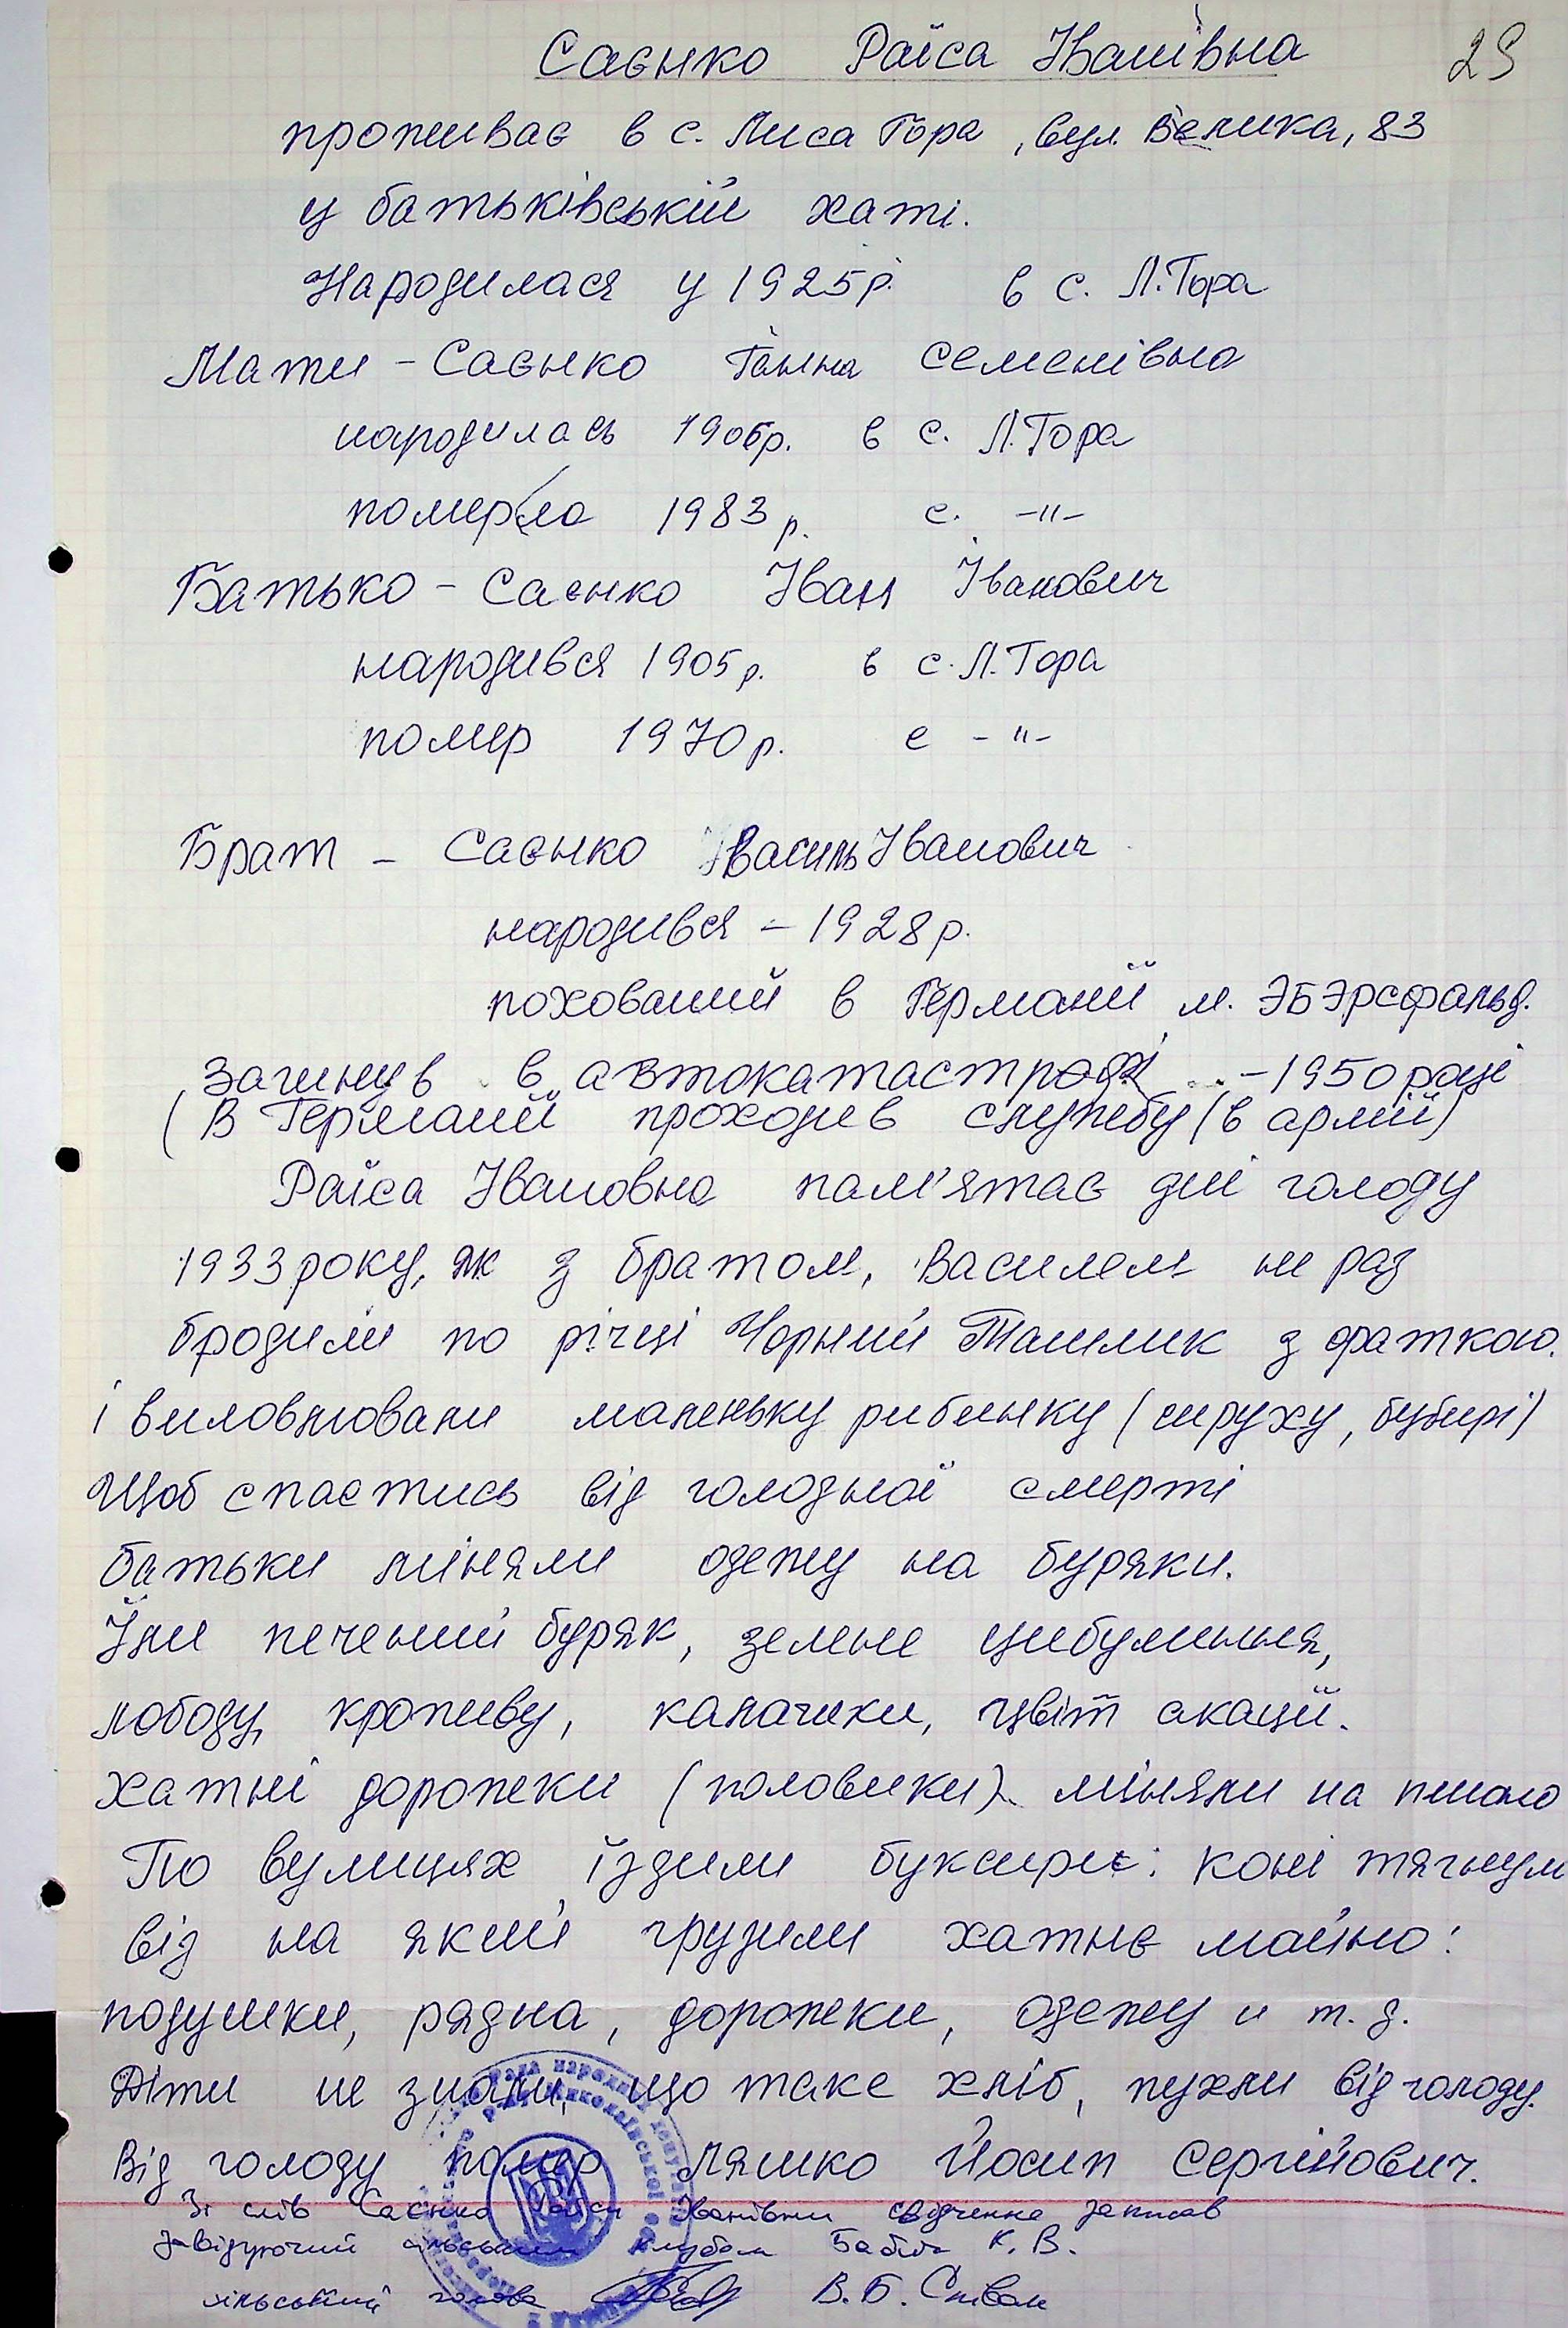 Саєнко Раїса Іванівна 29
проживає в с. Лиса Гора, вул. Велика, 83
у батьківській хаті.
Народилася у 1925р. в с. Л.Гора
Мати - Саєнко Ганна Семенівна
народилась 1906р. в с. Л.Гора
померла 1983р. с. -"-
Батько - Саєнко Іван Іванович
народився 1905р. в с. Л.Гора
помер 1970р. с -"-
Брат - Саєнко Василь Іванович
народився - 1928р.
похований в Германії м. Эбэрсфальд.
Загинув в автокатастрофі - 1950 році
(В Германії проходив службу (в армії)
Раїса Івановна пам'ятає дні голоду
1933 року, як з братом, Василем не раз
бродили по річці Чорний Ташлик з фаткою.
і виловлювали маленьку рибинку (сируху, бубирі)
Щоб спастись від голодної смерті
батьки міняли одежу на буряки.
Їли печений буряк, зелене цибулиння,
лободу, кропиву, калачики, цвіт акації.
хатні дорожки (половики) міняли на пшоно
По вулицях їздили буксири: коні тягнули
віз на який грузили хатнє майно:
подушки, рядна, дорожки, одежу и т.д.
Діти не знали, що таке хліб, пухли від голоду.
Від голоду помер Ляшко Йосип Сергійович.
Зі слів Саєнко Раїси Іванівни свідчення записав
Завідуючий сільським клубом Бабич К.В.
сільський голова В.Б. Співак